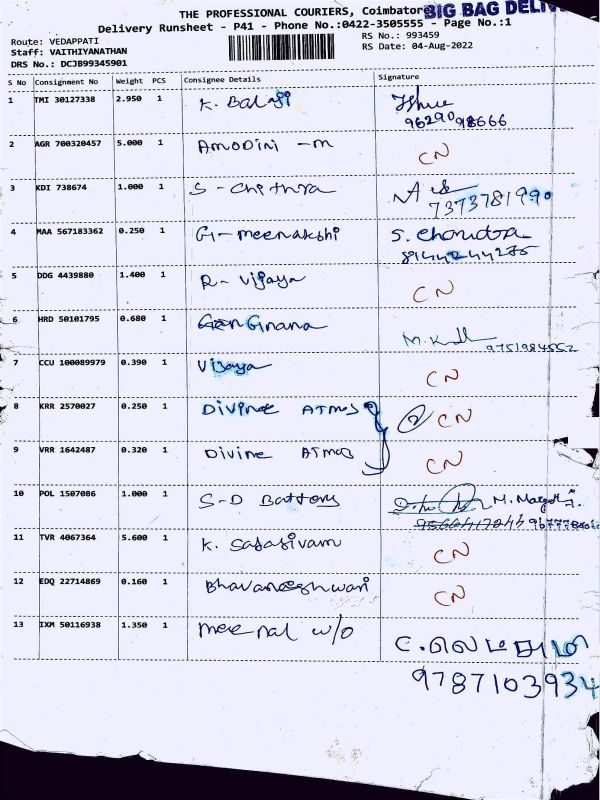 THE PROFESSIONAL COURIERS, Coimbatore BIG BAG DELIV
Delivery Runsheet - P41 - Phone No.:0422-3505555 - Page No.:1
Route: VEDAPPATI
RS No.: 993459
Staff: VAITHIYANATHAN
RS Date: 04-Aug-2022
DRS No.: DCJB99345901
S No Consignment No Weight PCS Consignee Details Signature
1 TMI 30127338 2.950 1 K. Balaji
9629098666
2 AGR 700320457 5.000 1 Amodini -m CN
3 KDI 738674 1.000 1 S - Chithra
7373781990
4 MAA 567183362 0.250 1 G - meenakshi S. Chandra
5 DDG 4439880 1.400 1 R - Vijaya CN
6 HRD 50101795 0.680 1 Gnana
9751984552
7 CCU 100089979 0.390 1 Vijaya CN
8 KRR 2570027 0.250 1 Divine ATMOS CN
9 VRR 1642487 0.320 1 Divine ATMOS CN
10 POL 1507086 1.000 1 S-D Battery
11 TVR 4067364 5.600 1 K. Sadasivam CN
12 EDQ 22714869 0.160 1 Bhavaneeshwari CN
13 IXM 50116938 1.350 1 meenal w/o
9787103934